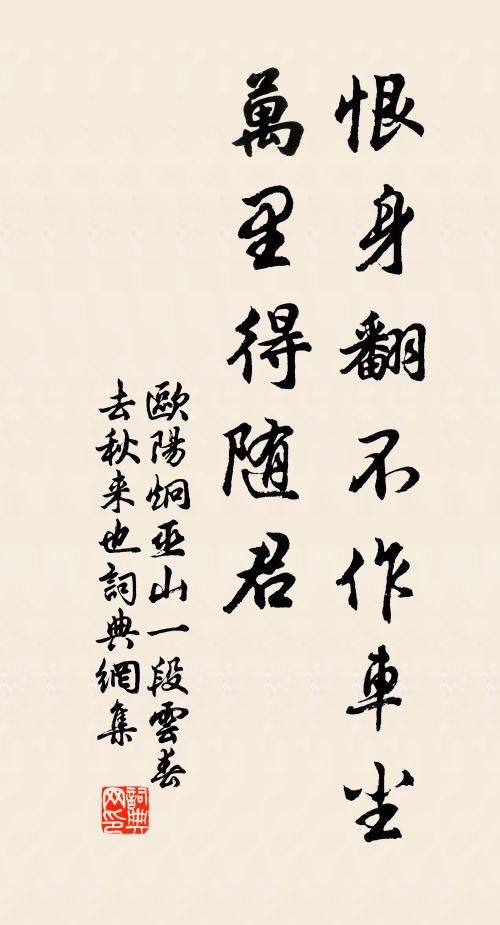 恨身翻不作車尘
萬里得随君
歐陽炯巫山一段雲春
去秋来也詞典網集
詞典
网印